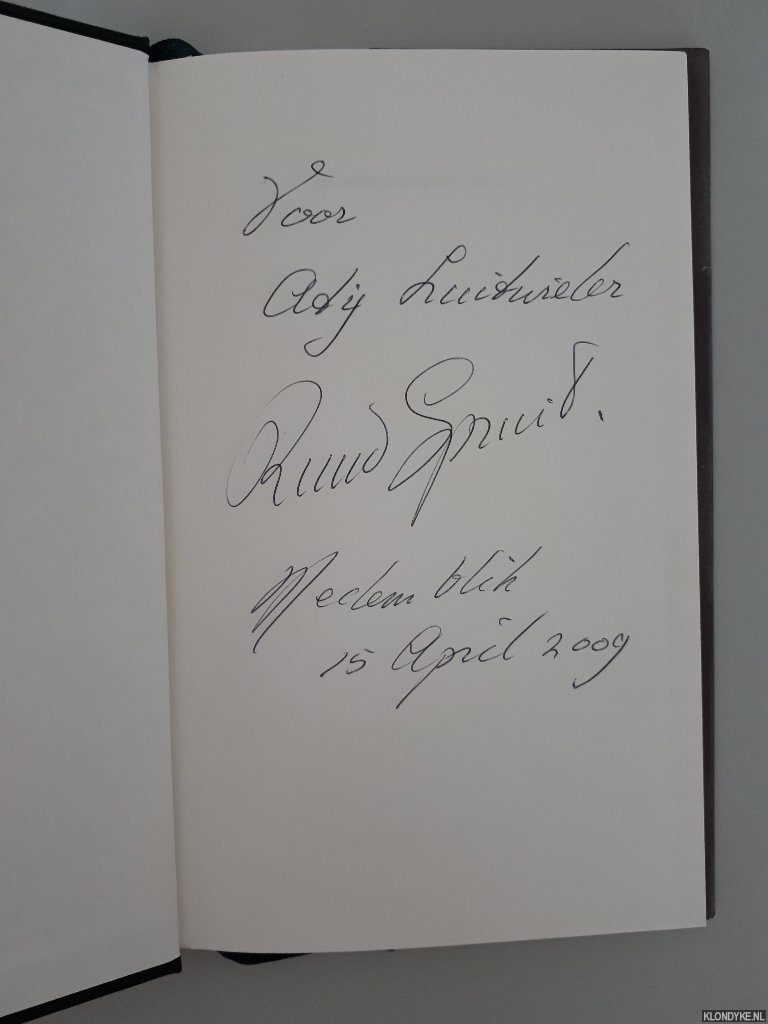 Voor
Adij Luitwieler
Ruud Spruit.
Medemblik
15 April 2009
KLONDYKE.NL